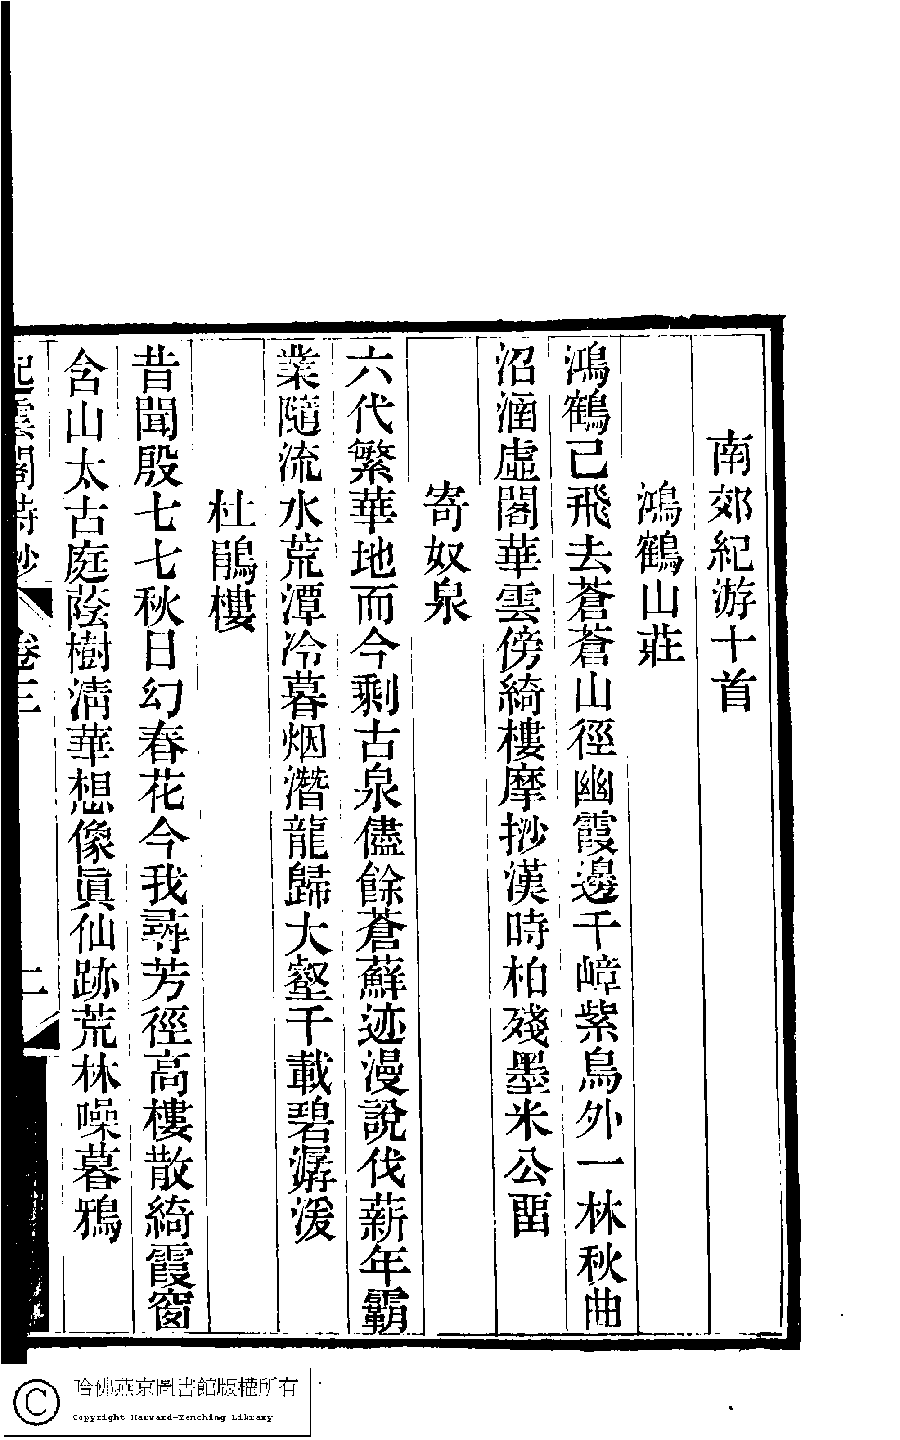 南郊紀游十首
鴻鶴山莊
鴻鶴已飛去蒼蒼山徑幽霞邊千嶂紫鳥外一林秋曲
沼涵虛閣華雲傍綺樓摩挱漢時柏殘墨米公畱
寄奴泉
六代繁華地而今剩古泉儘餘蒼蘚迹漫說伐薪年霸
業隨流水荒潭冷暮烟潛龍歸大壑千載碧潺湲
杜鵑樓
昔聞殷七七秋日幻春花今我尋芳徑高樓散綺霞窗
含山太古庭蔭樹淸華想像眞仙跡荒林噪暮鴉
起雲閣詩鈔 卷三 二
哈佛燕京圖書館版權所有
Copyright Harvard-Yenching Library